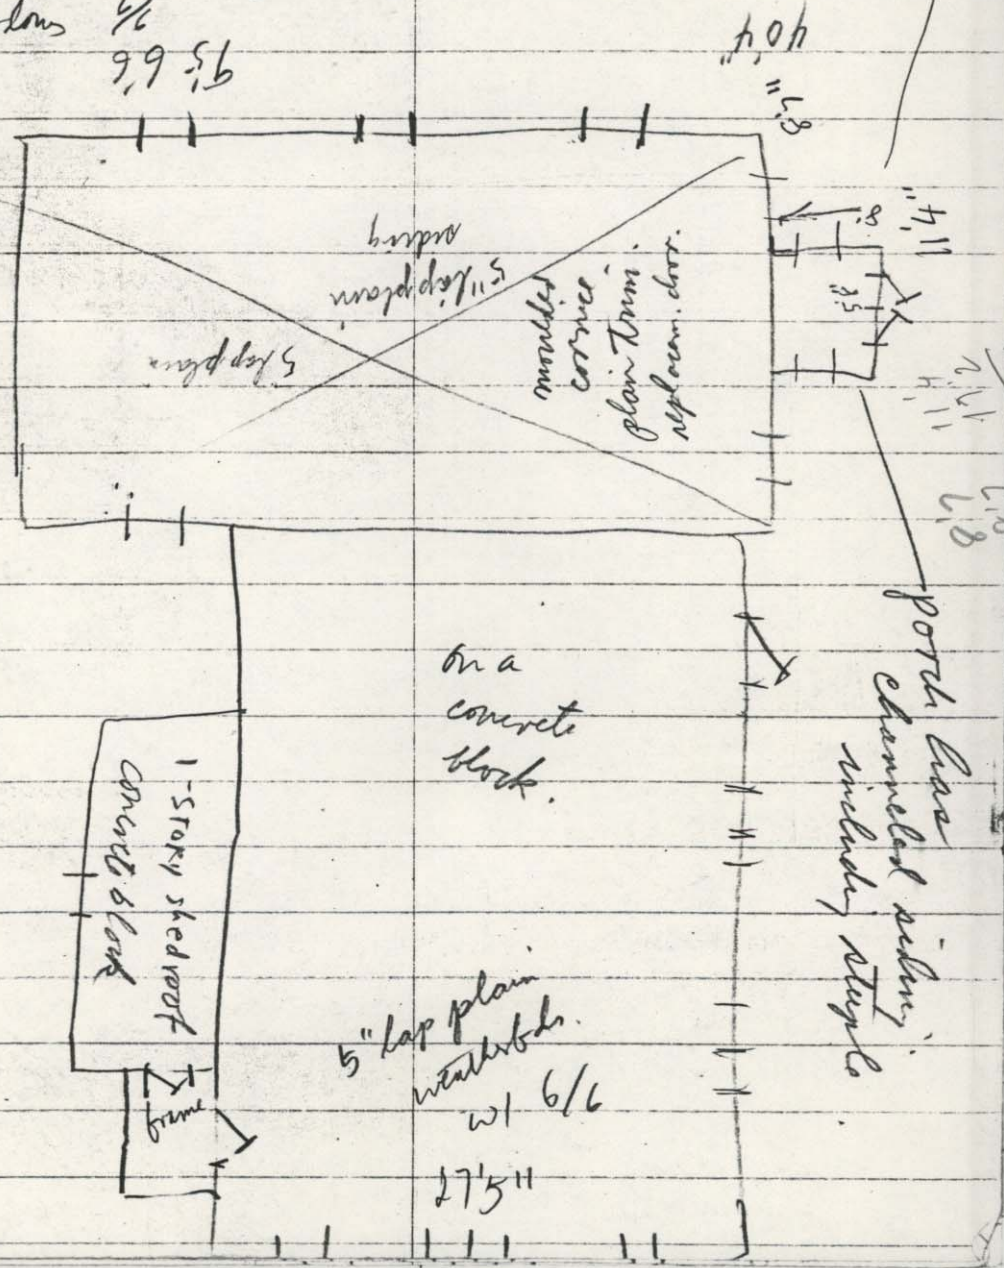 40'4"
8'7"
11'4"
8'
5'8
5" lap plain
siding
5 lap plain
moulded
cornice
plain trim.
replacem. door.
11'4
porch has
channeled siding
including steeple
on a
concrete
block.
1-story shed roof
concrete block
frame
5" lap plain
weatherbds.
w/ 6/6
27'5"